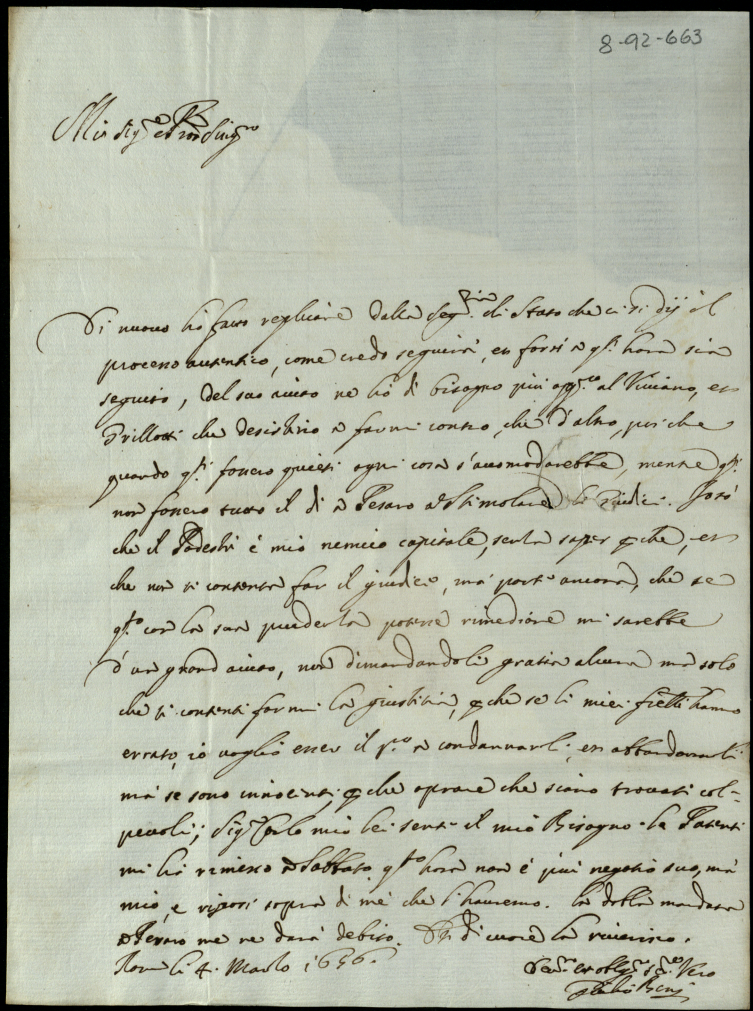 8-92-663
Mio Sig.re et Pron Sing.mo
Di nuovo hò fatto replicare dalla Seg.ria di Stato che ci si dij il
processo autentico, come credo seguirà, et forsi à q.st hora sia
seguito, del suo aiuto ne hò di bisogno più app.o al Viviano, et
Grillotti che desistino à farmi contro, che d'altro, poi che
quando q.sti fossero quieti ogni cosa s'accomodarebbe, mentre q.sti
non fossero tutto il dì à Pesaro à stimolare li Giudici. Sotò
che il Tadeshi è mio nemico capitale, senza saper p che, et
che non si contenta far il giudice, mà parte ancora, che se
q.sto con la sua prudenza potesse rimediare mi sarebbe
d'un grand aiuto, non dimandandoli gratia alcuna mà solo
che si contenti farmi la giustitia, p che se li miei fratelli hanno
errato, io voglio esser il p.o à condannarli, et abbandonarli
mà se sono innocenti, p che oprare che siano trovati col=
pevoli; Sig.r Carlo mio lei sente il mio Bisogno. la Patente
mi hà rimesso à Sabbato q.sto hora non è più negotio suo, mà
mio, e riposi sopra di mè che l'hauremo. la dobla mandata
à Pesaro me ne darà debito. Et di cuore la riverisco.
Roma li 4. Marzo 1656.
Dev.mo et oblig.mo Ser.re Vero
Giulio